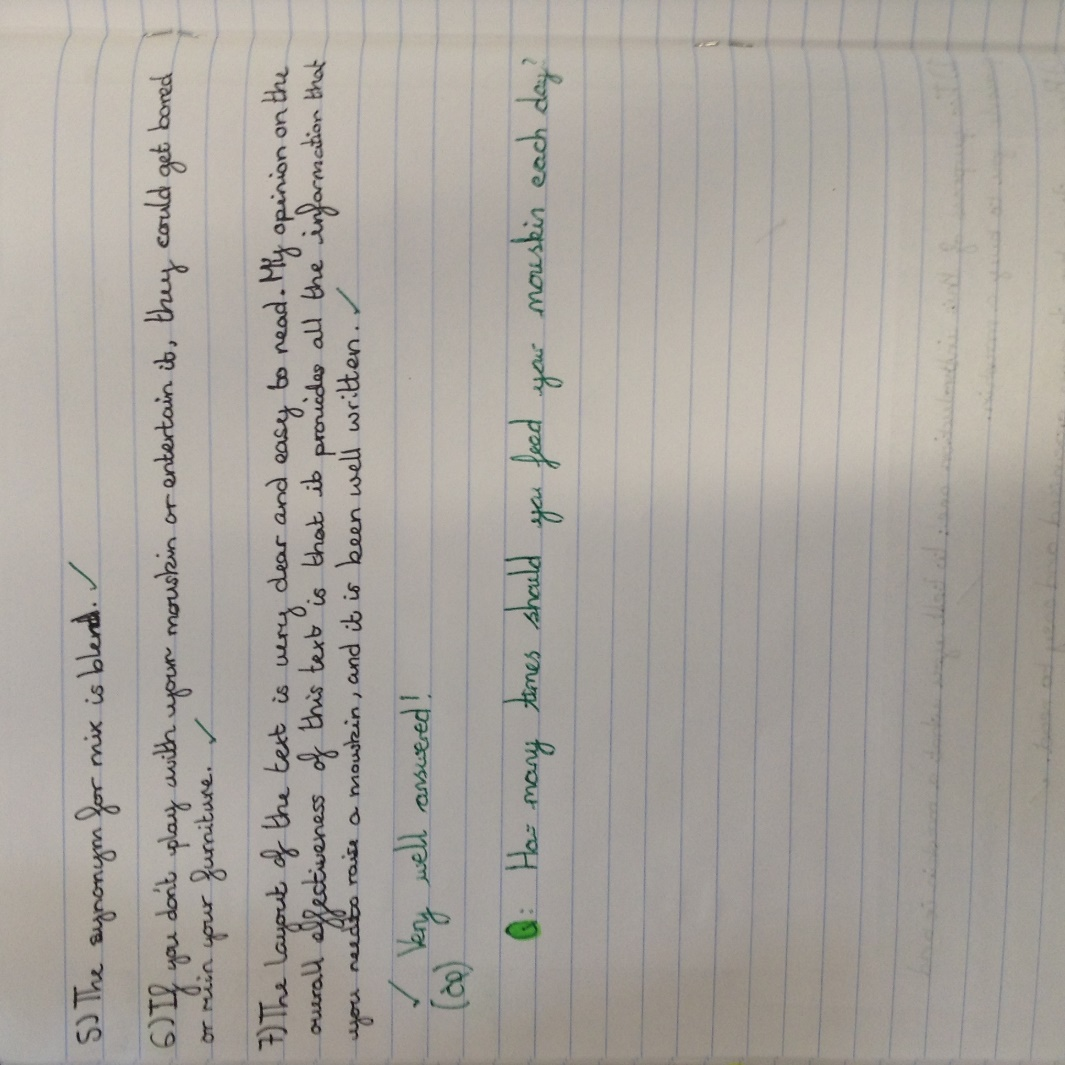 5) The synonym for mix is blend. ✓
6) If you don't play with your mouskin or entertain it, they could get bored
or ruin your furniture. ✓
7) The layout of the text is very clear and easy to read. My opinion on the
overall effectiveness of this text is that it provides all the information that
you need to raise a mouskin, and it is been well written. ✓
✓ Very well answered!
Q: How many times should you feed your mouskin each day?